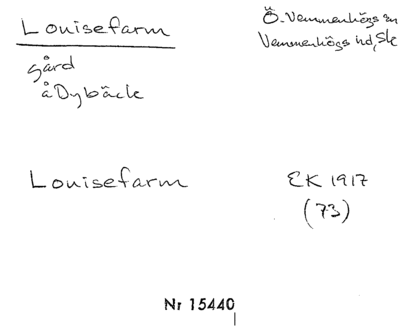 Louisefarm
Ö. Vemmenhögs sn
Vemmenhögs hd, Sk
gård
å Dybäck
Louisefarm
EK 1917
(73)
Nr 15440